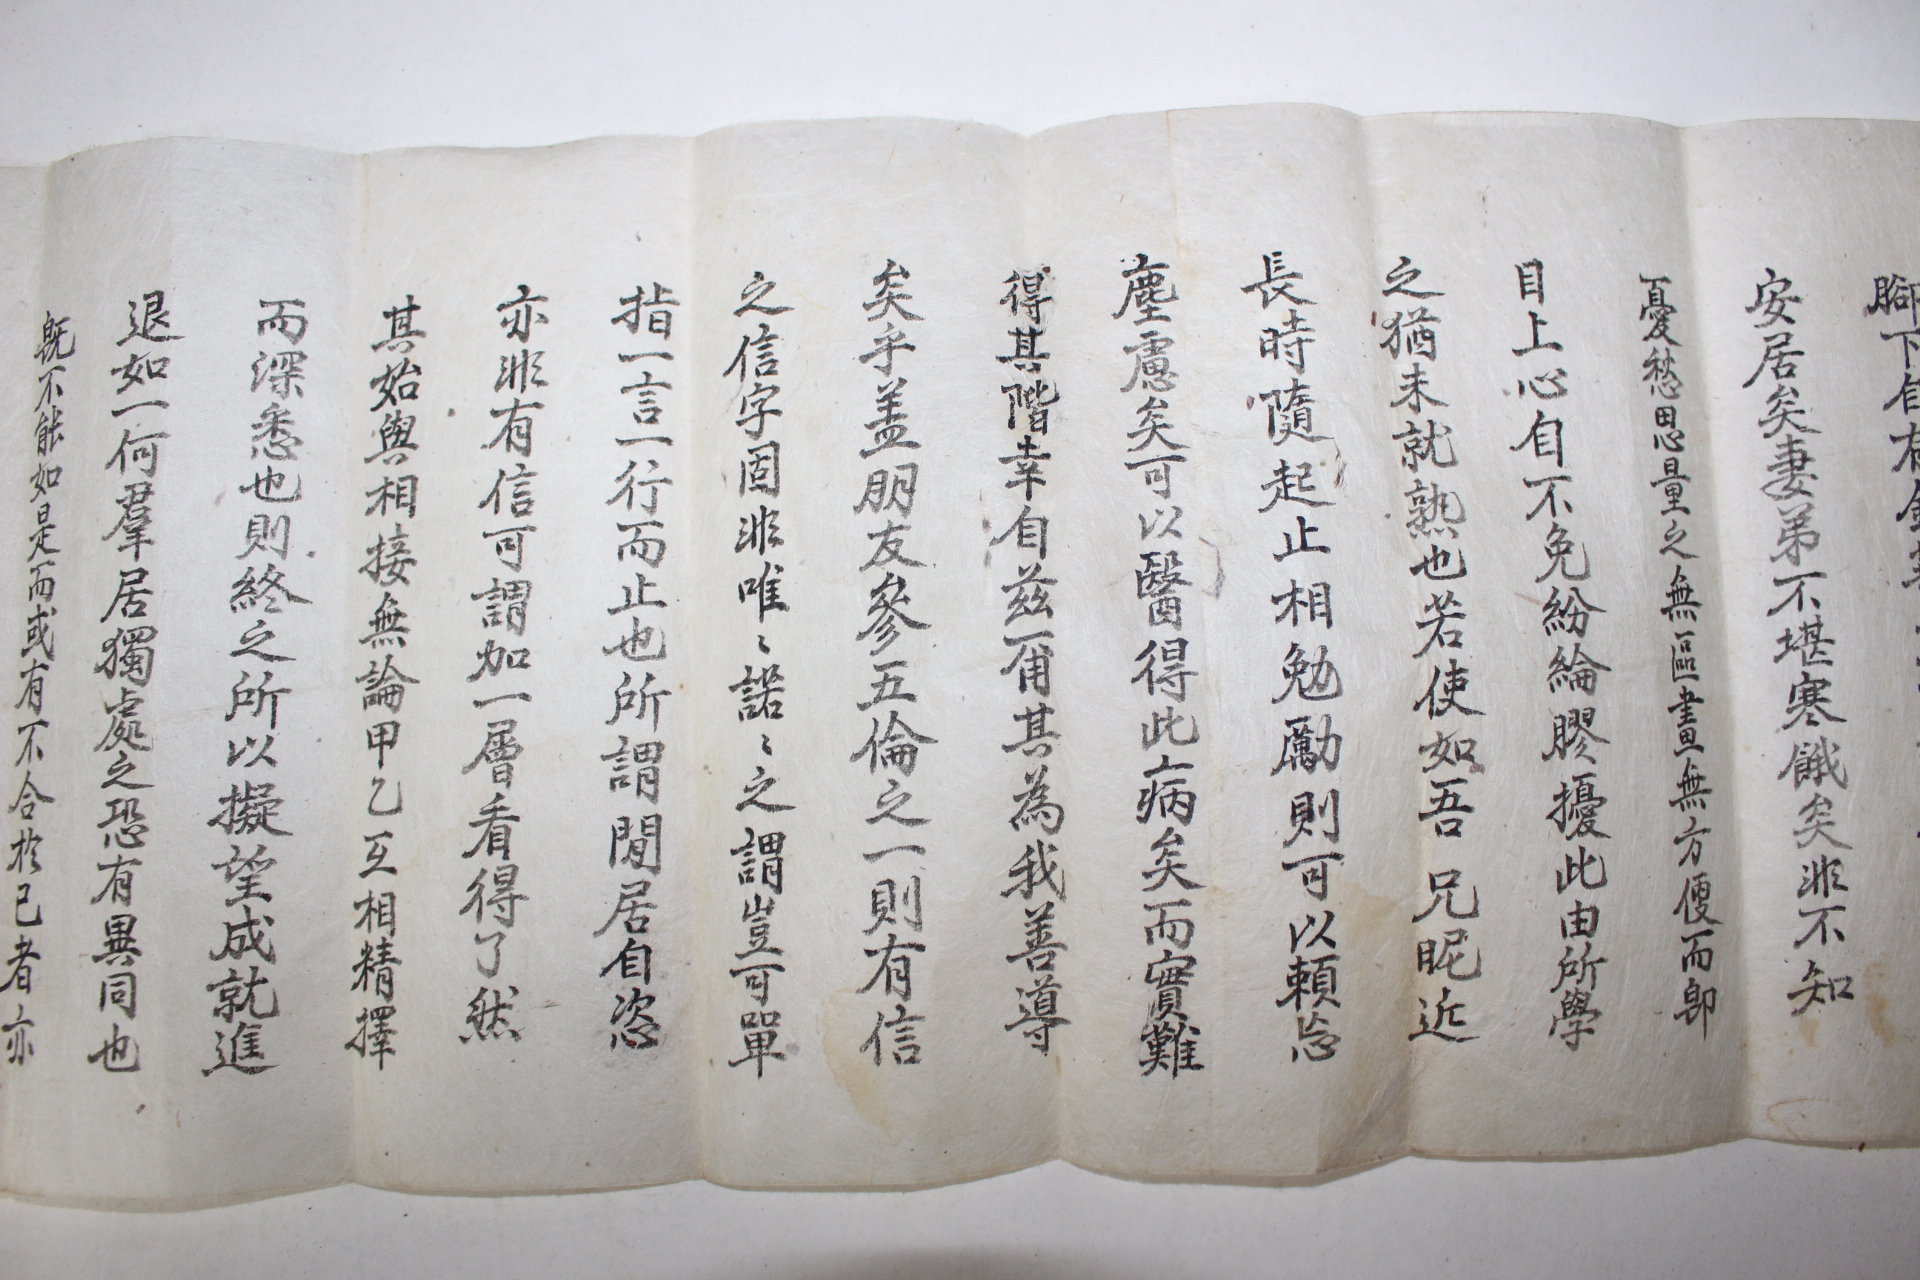 腳下自有
安居矣妻弟不堪寒餓矣非不知
憂愁思量之無區畫無方便而卽
目上心自不免紛綸膠擾此由所學
之猶未就熟也若使如吾兄昵近
長時隨起止相勉勵則可以賴忘
塵慮矣可以醫得此病矣而實難
得其階幸自玆一甫其為我善導
矣乎盖朋友參五倫之一則有信
之信字固非唯〻諾〻之謂豈可單
指一言一行而止也所謂閒居自恣
亦非有信可謂加一層看得了然
其始與相接無論甲乙互相精擇
而深悉也則終之所以擬望成就進
退如一何羣居獨處之恐有異同也
旣不能如是而或有不合於己者亦